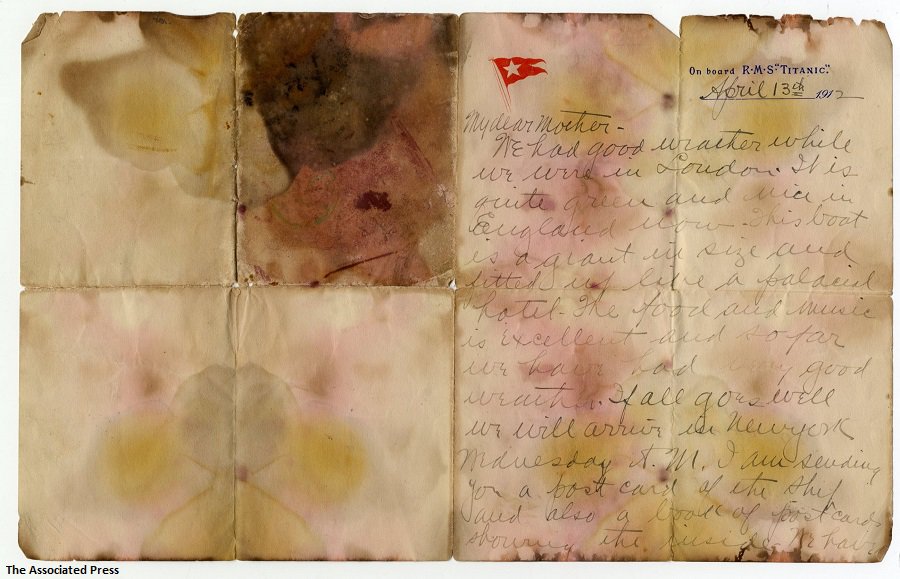 On board R·M·S·"TITANIC".
April 13th 1912
My dear Mother -
We had good weather while
we were in London. It is
quite green and nice in
England now. This boat
is a giant in size and
fitted up like a palacial
hotel. The food and music
is excellent and so far
we have had very good
weather. If all goes well
we will arrive in New york
Wednesday A.M. I am sending
you a post card of the ship
and also a book of postcards
showing the inside.
The Associated Press